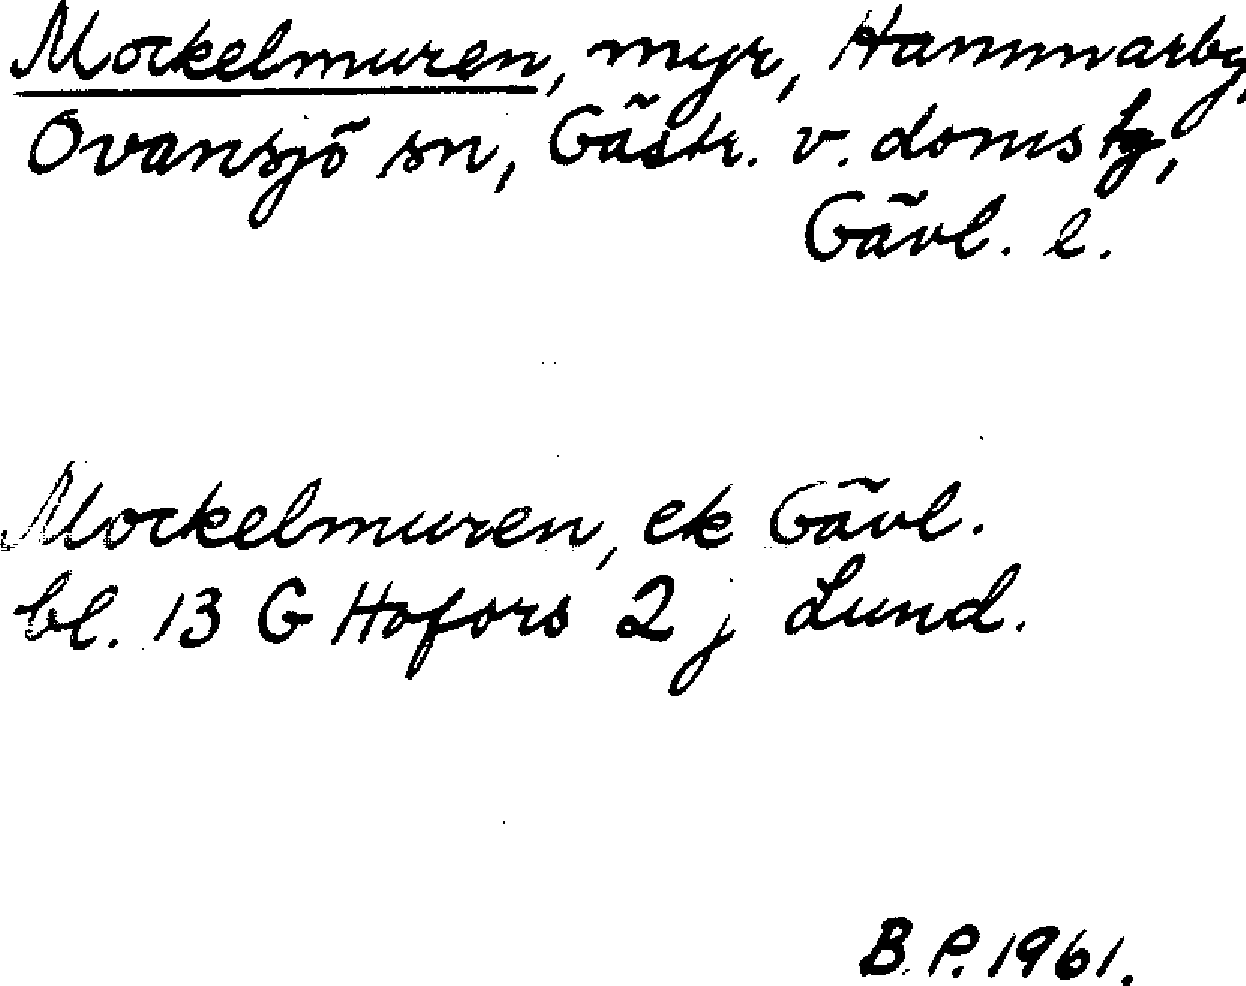 Mockelmuren, myr, Hammarby,
Ovansjö sn, Gästr. v. doms hg,
Gävl. l.
Mockelmuren, ek Gävl.
bl. 13 G Hofors 2 j Lund.
B.P. 1961.